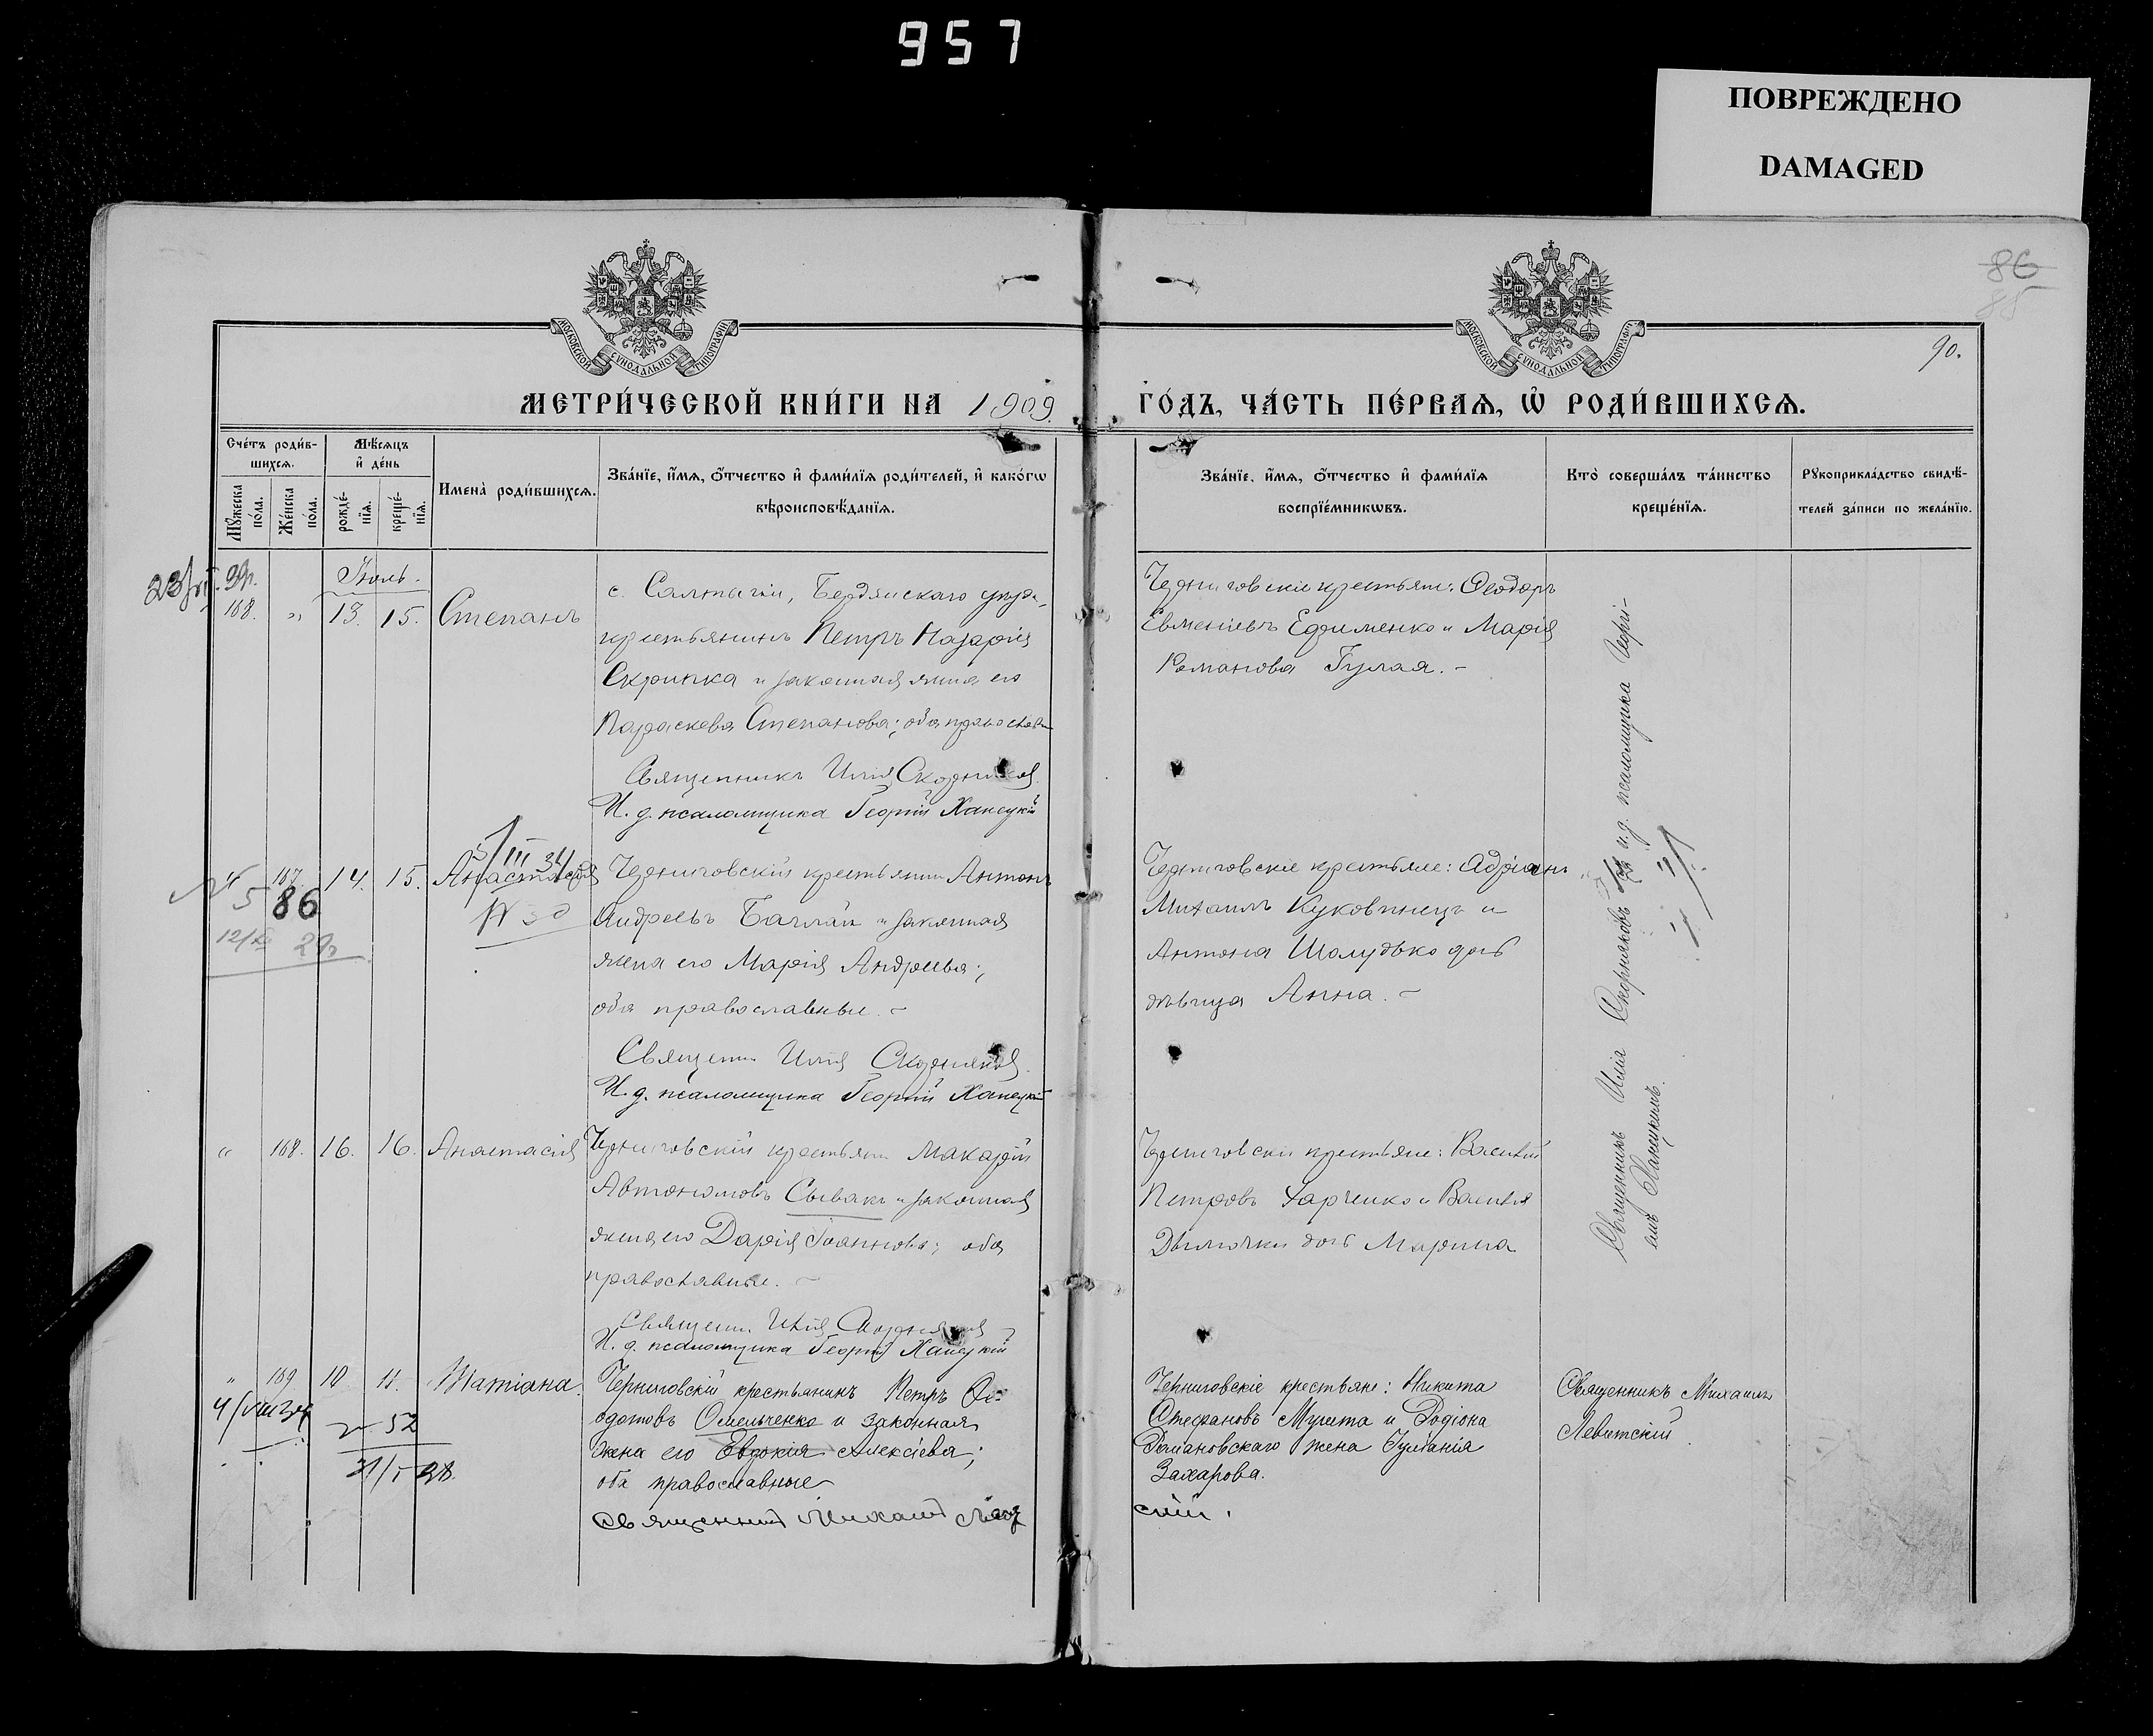 957
ПОВРЕЖДЕНО
DAMAGED
86
85
90.
МОСКОВСКОЙ СѴНОДАЛЬНОЙ ТИПОГРАФІИ
МОСКОВСКОЙ СѴНОДАЛЬНОЙ ТИПОГРАФІИ
МЕТРИ́ЧЕСКОЙ КНИ́ГИ НА 1909
ГО́ДЪ, ЧА́СТЬ ПЕ́РВАѦ, Ѡ РОДИ́ВШИХСѦ.
Сче́тъ роди́в-
шихсѧ.
Мꙋ́жеска по́ла.
Же́нска по́ла.
Мѣ́сѧцъ
и҆ де́нь
рожде́-
нїѧ.
креще́-
нїѧ.
Имена̀ роди́вшихсѧ.
Зва́нїе, и҆́мѧ, ѻ҆́тчество и҆ фами́лїѧ роди́телей, и҆ како́гѡ
вѣроисповѣ́данїѧ.
Зва́нїе, и҆́мѧ, ѻ҆́тчество и҆ фами́лїѧ
воспрїе́мникѡвъ.
Кто̀ соверша́лъ та́инство
креще́нїѧ.
Рꙋкоприкла́дство свидѣ́-
телей за́писи по жела́нїю.
Іюль.
168. " 13. 15. Степанъ
с. Салтычіи, Бердянскаго уѣзда,
крестьянинъ Петръ Назарія
Скрипка и законная жена его
Параскева Степанова; оба православн
Священникъ Илія Скорняковъ
И. д. псаломщика Георгій Ханецкій
Черниговскіе крестьяне: Ѳеодоръ
Евменіевъ Ефименко и Марія
Романова Гулая. –
" 167. 14. 15. Анастасія
5/III 34
№ 5 86
№ 30
Черниговскій крестьянинъ Антонъ
Андреевъ Баглай и законная
жена его Марія Андреева;
оба православные. –
Священ. Илія Скорняковъ
И. д. псаломщика Георгій Ханецкій
Черниговскіе крестьяне: Адріанъ
Михаилъ Куковинецъ и
Антона Шолудько дочь
дѣвица Анна. –
Священникъ Илія Скорняковъ и. д. псаломщика Георгі-
емъ Ханецкимъ.
" 168. 16. 16. Анастасія
Черниговскій крестьян. Макарій
Автономовъ Сывакъ и законная
жена его Дарія Іоаннова; оба
православные. –
Священ. Илія Скорняковъ
И. д. псаломщика Георгій Ханецкій
Черниговскіе крестьяне: Василій
Петровъ Харченко и Василія
дочь Марина
" 169 10 11. Татіана.
52
Черниговскій крестьянинъ Петръ Ѳе-
одотовъ Омельченко и законная
жена его Евдокія Алексіева;
оба православные
Священникъ Михаилъ Левит
скій.
Черниговскіе крестьяне: Никита
Стефановъ Мушта и Родіона
Романовскаго жена Іуліанія
Захарова.
Священникъ Михаилъ
Левитскій.